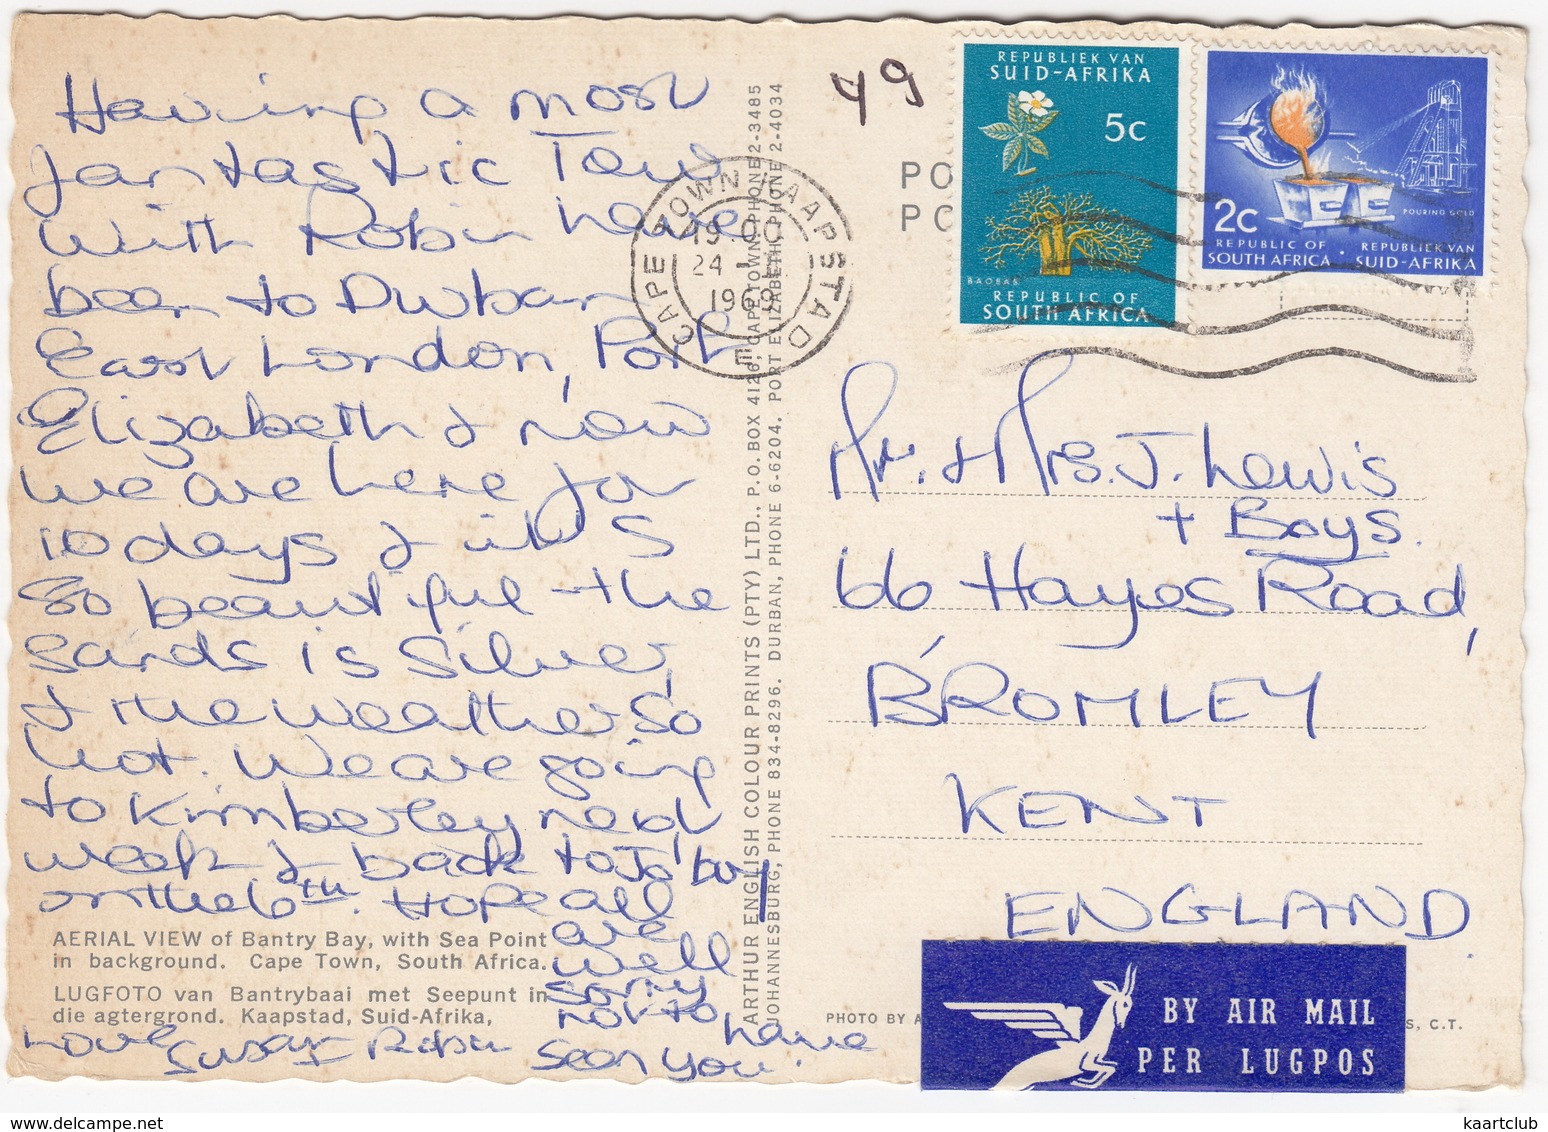 Having a most
fantastic Tour
with Robin have
been to Durban
East London, Port
Elizabeth & now
we are here for
10 days & it's
so beautiful - the
sands is silver,
& the weather so
hot. We are going
to Kimberley next
week & back to Jo'burg
on the 6th. Hope all
are
well
sorry
not to have
seen you.
Love Susan & Robin
AERIAL VIEW of Bantry Bay, with Sea Point
in background. Cape Town, South Africa.
LUGFOTO van Bantrybaai met Seepunt in
die agtergrond. Kaapstad, Suid-Afrika,
ARTHUR ENGLISH COLOUR PRINTS (PTY) LTD., P.O. BOX 4126, CAPE TOWN, PHONE 2-3485
JOHANNESBURG, PHONE 834-8296. DURBAN, PHONE 6-6204. PORT ELIZABETH, PHONE 2-4034
CAPE TOWN KAAPSTAD
24
E
49
PO
PO
REPUBLIEK VAN
SUID-AFRIKA
5c
BAOBAB
REPUBLIC OF
SOUTH AFRICA
2c
POURING GOLD
REPUBLIC OF SOUTH AFRICA · REPUBLIEK VAN SUID-AFRIKA
Mr. & Mrs. J. Lewis
+ Boys.
66 Hayes Road,
BROMLEY
KENT
ENGLAND
PHOTO BY A
S, C.T.
BY AIR MAIL
PER LUGPOS
www.delcampe.net
kaartclub